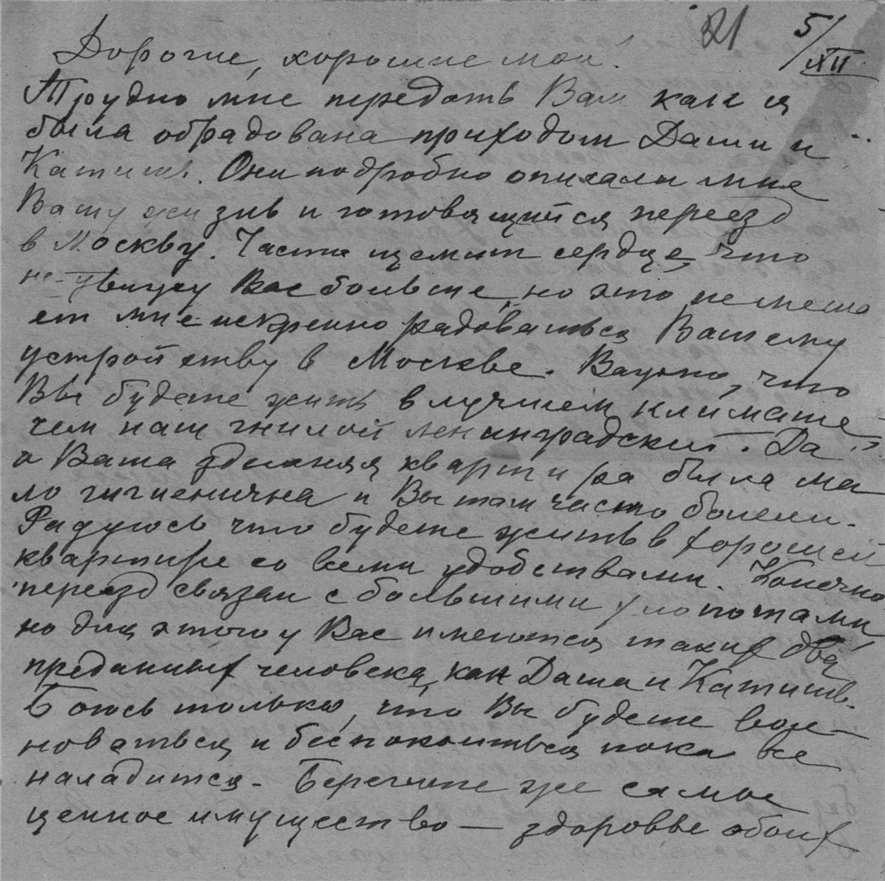 21 5/XII
Дорогие, хорошие мои!
Трудно мне передать Вам как я
была обрадована приходом Даши и
Катишь. Они подробно описали мне
Вашу жизнь и готовящийся переезд
в Москву. Часто щемит сердце, что
не увижу Вас больше, но это не меша
ет мне искренно радоваться Вашему
устройству в Москве. Важно, что
Вы будете жить в лучшем климате
чем наш гнилой ленинградский. Да
и Ваша здешняя квартира была ма
ло гигиенична и Вы там часто болели.
Радуюсь что будете жить в хорошей
квартире со всеми удобствами. Конечно
переезд связан с большими хлопотами
но для этого у Вас имеются таких два
преданных человека, как Даша и Катишь.
Боюсь только, что Вы будете вол-
новаться и беспокоиться пока все
наладится. Берегите же самое
ценное имущество — здоровье обоих